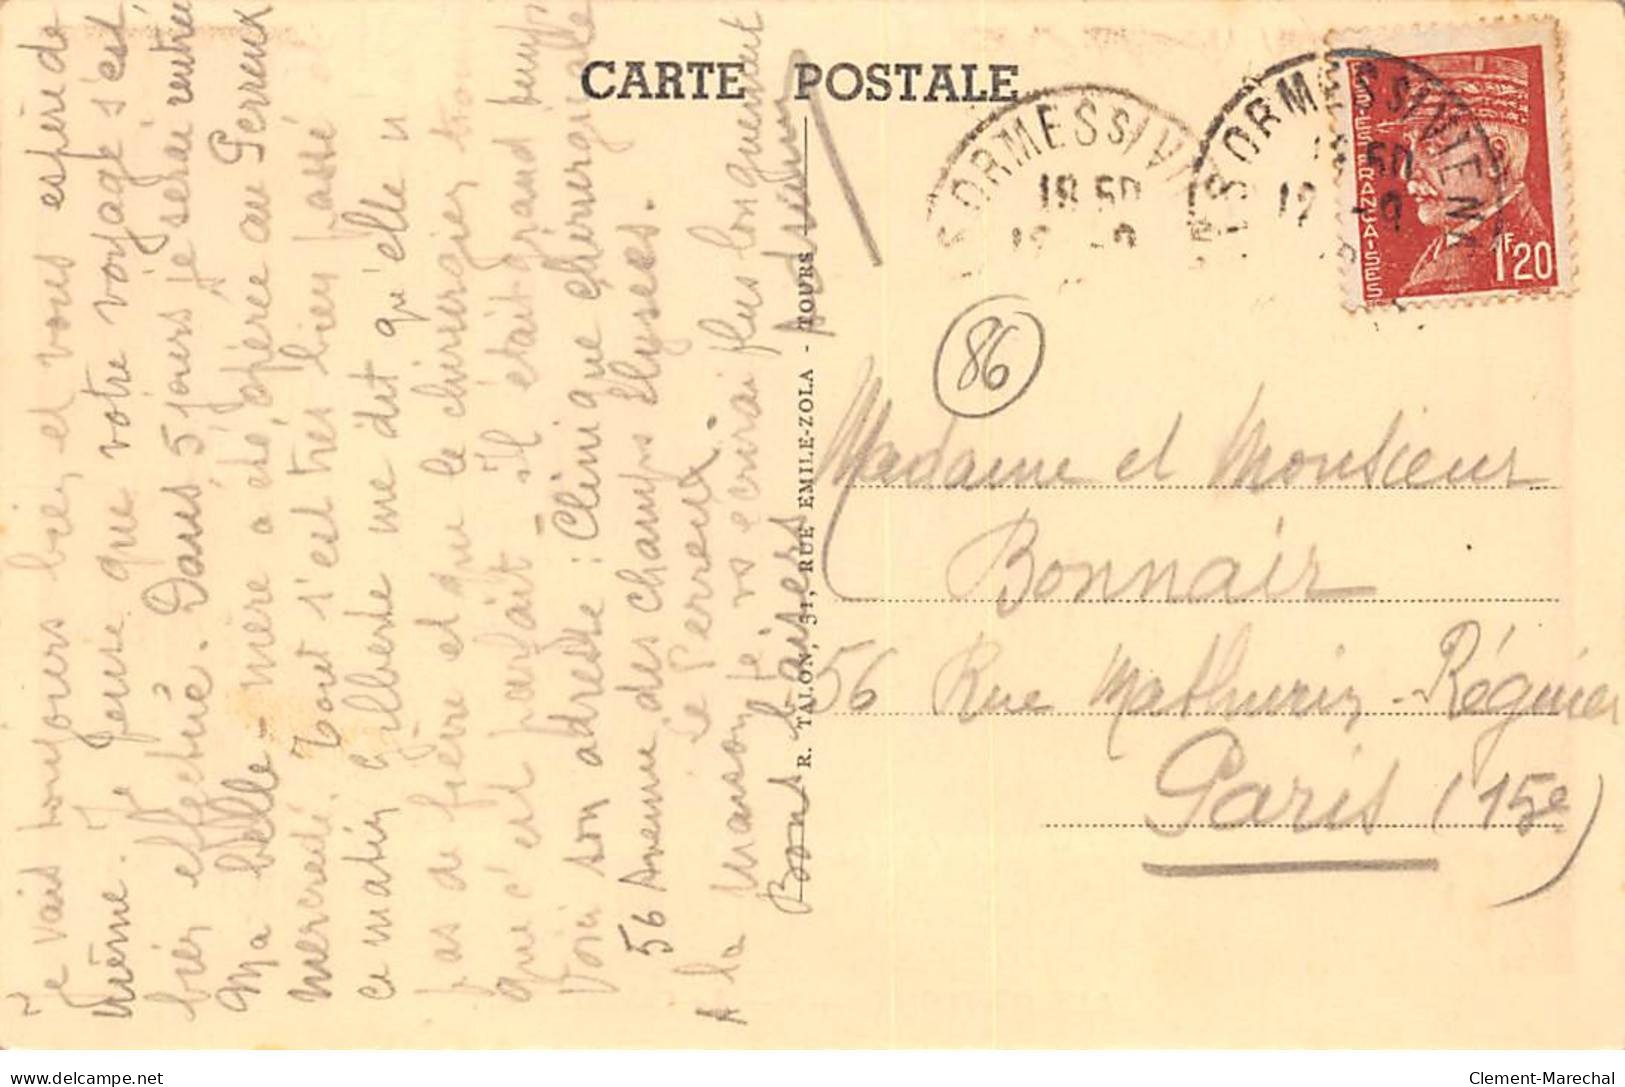 CARTE POSTALE
LES ORMES S/ VIENNE
18 50
LES ORMES S/ VIENNE
18 50
12 -9
POSTES FRANÇAISES
1F20
86
Je vais toujours bien et vous espère de
même. Je pense que votre voyage s'est
bien effectué. Dans 5 jours je serai rentrée
Ma belle-mère a été opérée au Perreux
mercredi. Tout s'est très bien passé
ce matin Gilberte me dit qu'elle n'a
pas de fièvre et que le chirurgien trouve
que c'est parfait. Il était grand temps
Voici son adresse : Clinique Chirurgicale
56 Avenue des Champs Elysées.
Le Perreux.
A la maison je vs écrirai plus longuement
Bons baisers
R. TALON, 31, RUE EMILE-ZOLA - TOURS
Madame et Monsieur
Bonnair
56 Rue Mathurin-Régnier
Paris (15e)
Clement-Marechal
www.delcampe.net